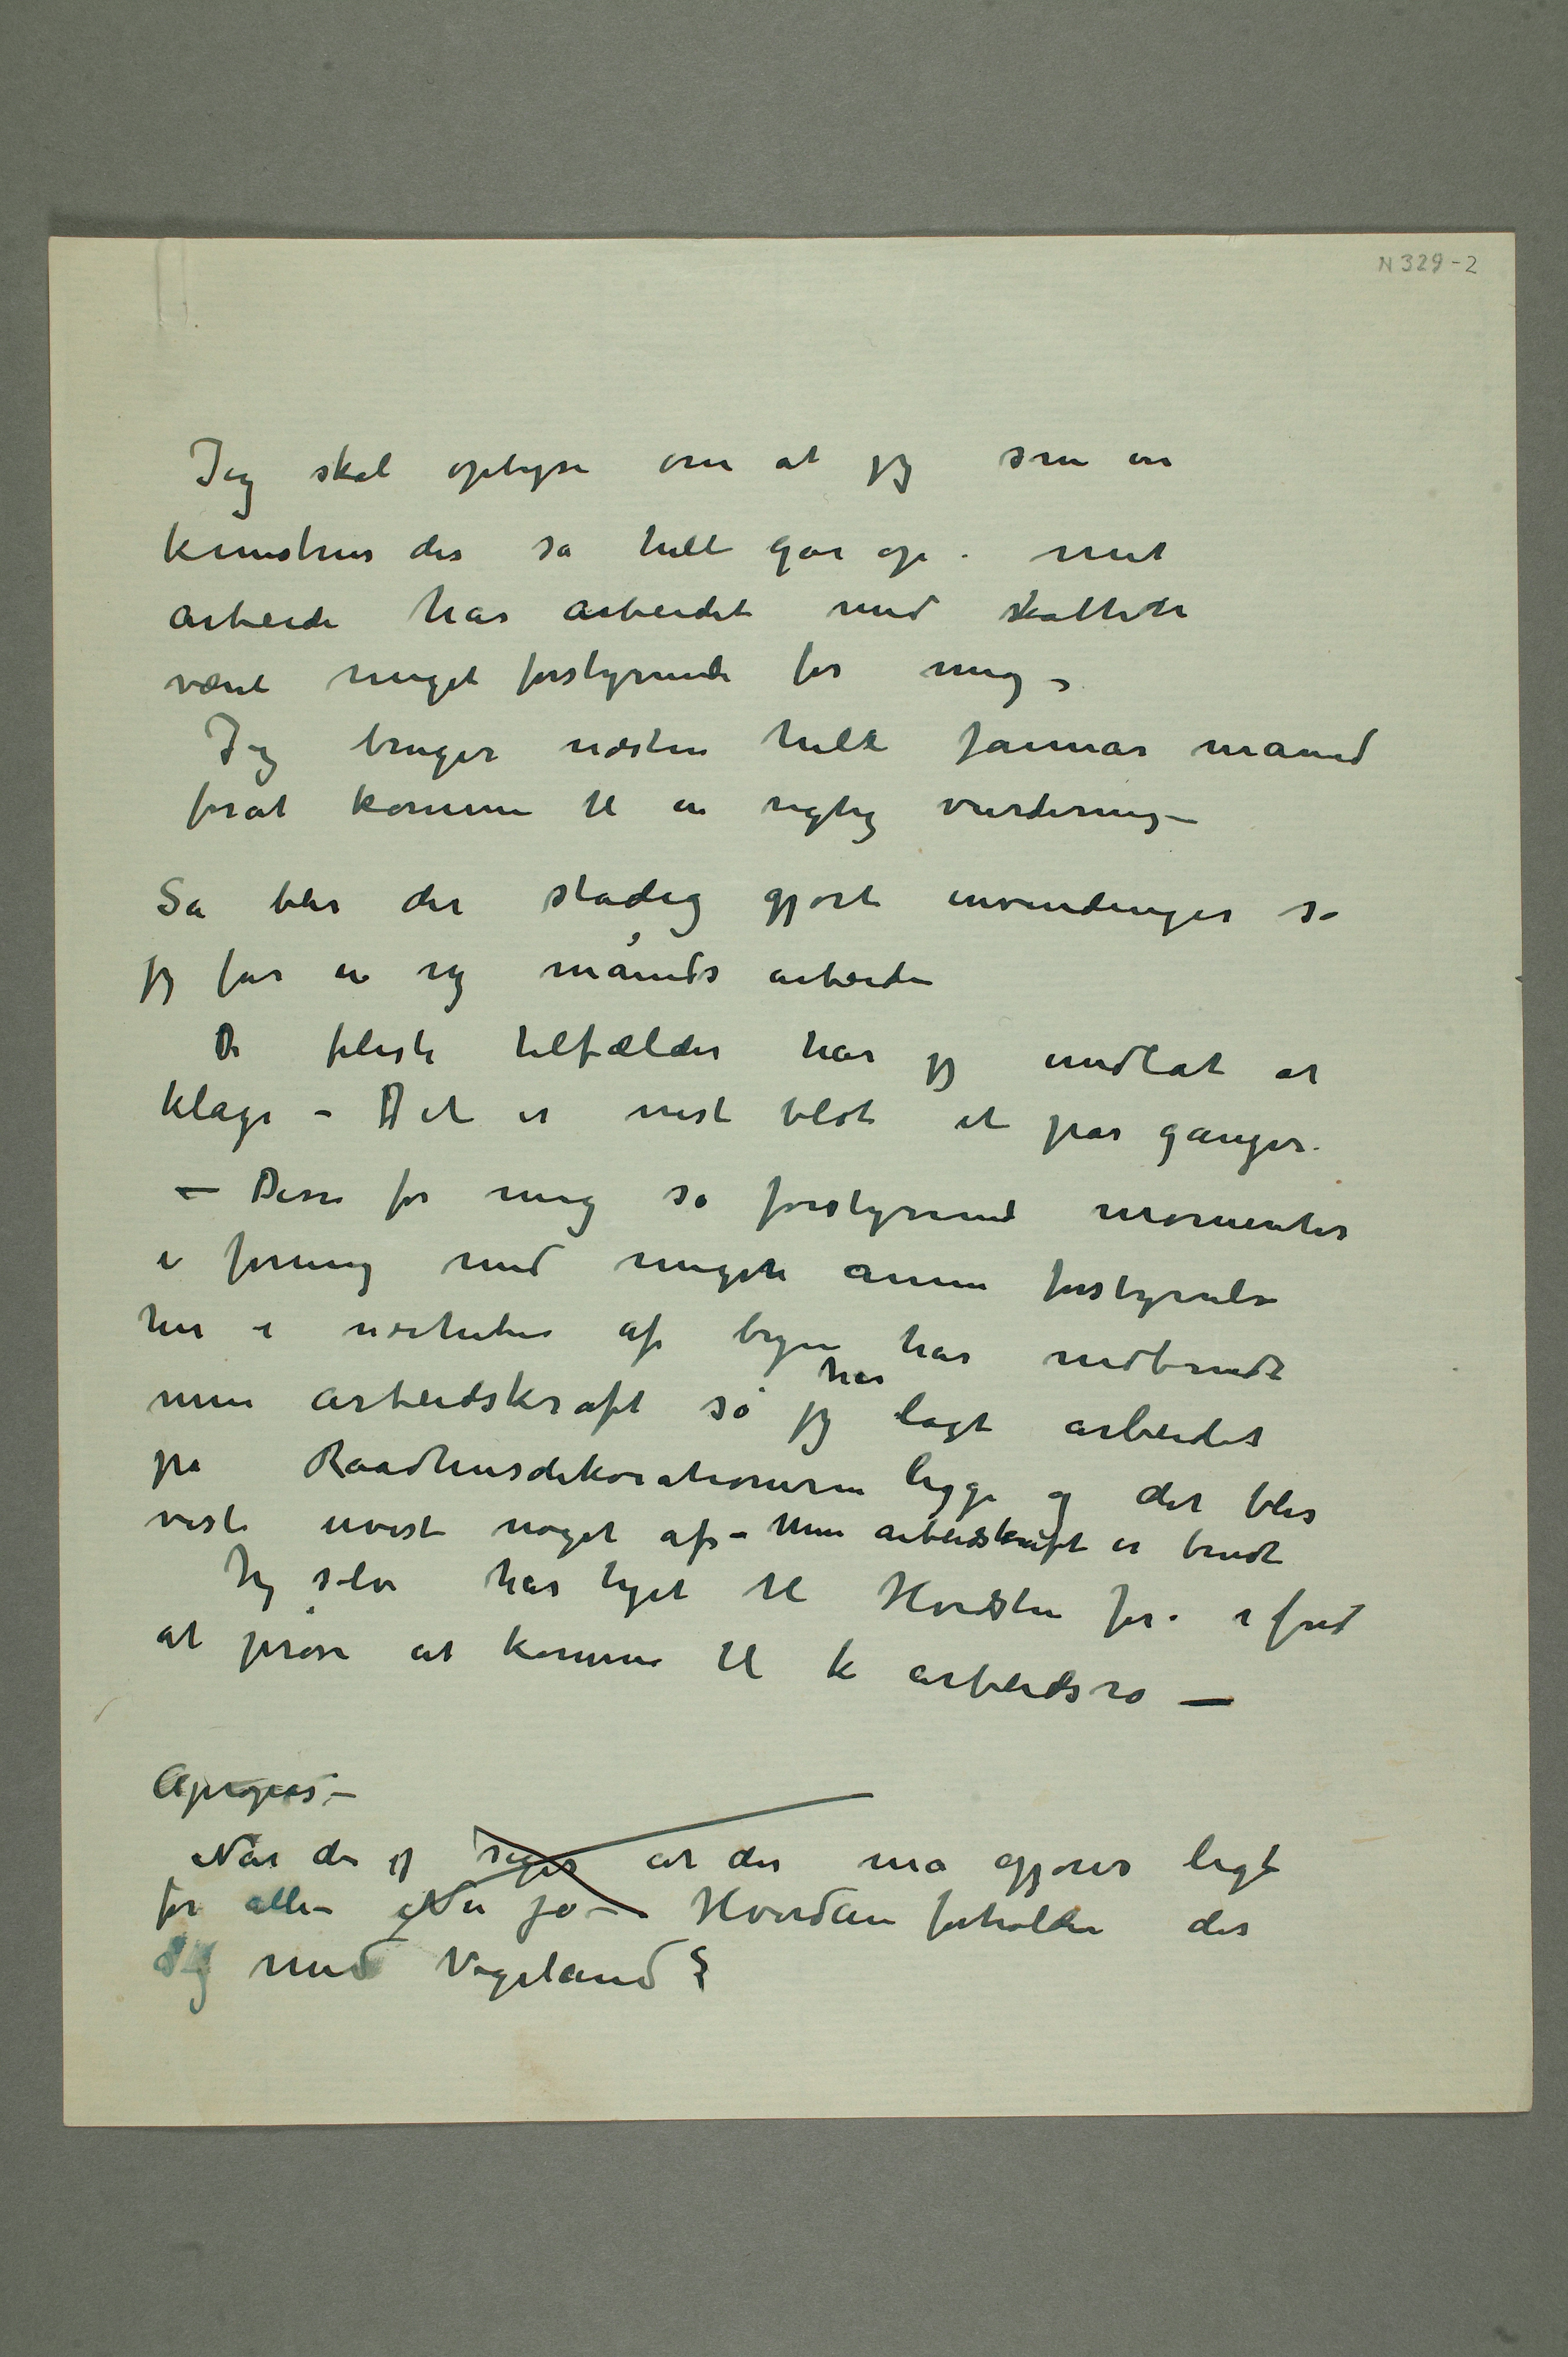 N 329-2
Jeg skal oplyse om at jeg som en
kunstner der så helt går op i mit
arbeide har arbeidet med skatten
været meget forstyrrende for mig –
Jeg bruger næsten hele Januar måned
forat komme til en rigtig vurdering –
Så blir der stadig gjort invendinger så
jeg får en ny måneds arbeide
De fleste tilfælder har jeg undlat at
klage – Det er vist blot et par ganger.
– Disse for mig så forstyrrende momenter
i forening med megen annen forstyrrelse
her i nærheten af byen har nedbrudt
min arbeidskraft så jeg har lagt arbeidet
på Raadhusdekorationerne ligge og det blir
visst uvist noget af – Min arbeidskraft er brudt
Jeg selv har tyet til Hvidsten for i fred
at prøve at komme til k arbeidsro –
Apropos –
Når de jeg siger at der må gjøres ligt
for alle – Nu ja – Hvordan forholder det
sig med Vigeland?